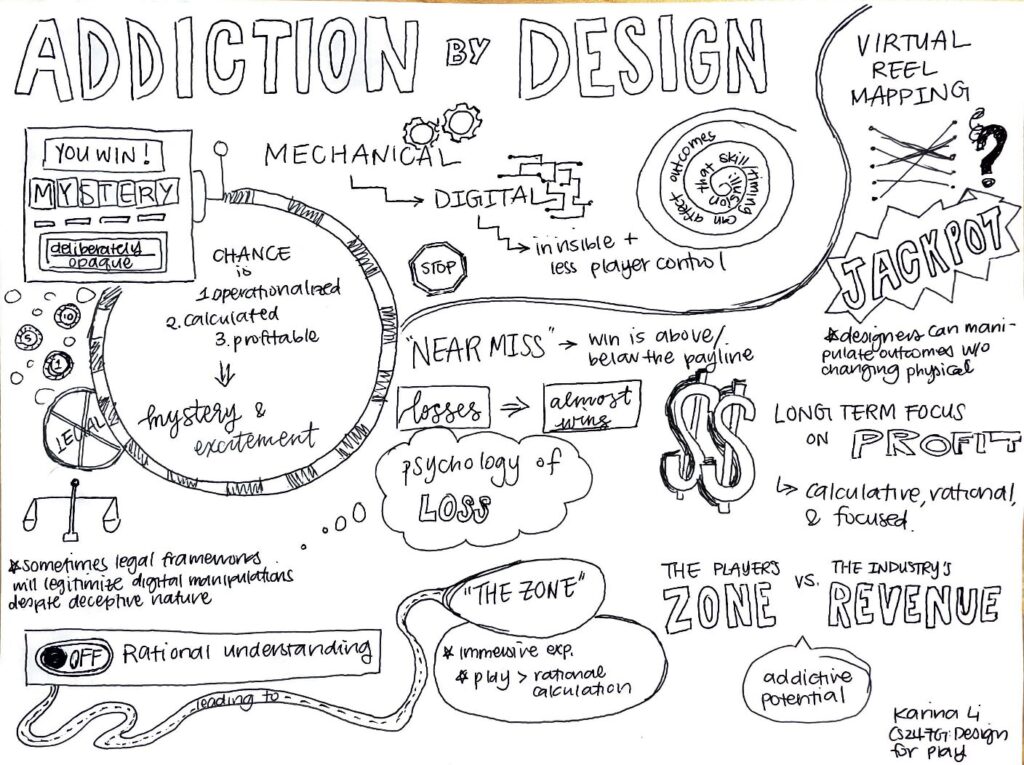 ADDICTION BY DESIGN
YOU WIN!
MYSTERY
deliberately
opaque
CHANCE
is
1. operationalized
2. calculated
3. profitable
mystery &
excitement
10
5
1
LEGAL
*sometimes legal frameworks
will legitimize digital manipulations
despite deceptive nature
MECHANICAL
DIGITAL
invisible +
less player control
STOP
illusion that skill/timing can affect outcomes
VIRTUAL
REEL
MAPPING
?
JACKPOT
*designers can mani-
pulate outcomes w/o
changing physical
"NEAR MISS" → win is above/
below the payline
losses ⇒ almost
wins
psychology of
LOSS
$$
LONG TERM FOCUS
ON PROFIT
↳ calculative, rational,
& focused.
THE PLAYER'S
ZONE
vs.
THE INDUSTRY'S
REVENUE
addictive
potential
OFF Rational understanding
leading to
"THE ZONE"
* immersive exp.
* play > rational
calculation
Karina Li
CS247G: Design
for Play